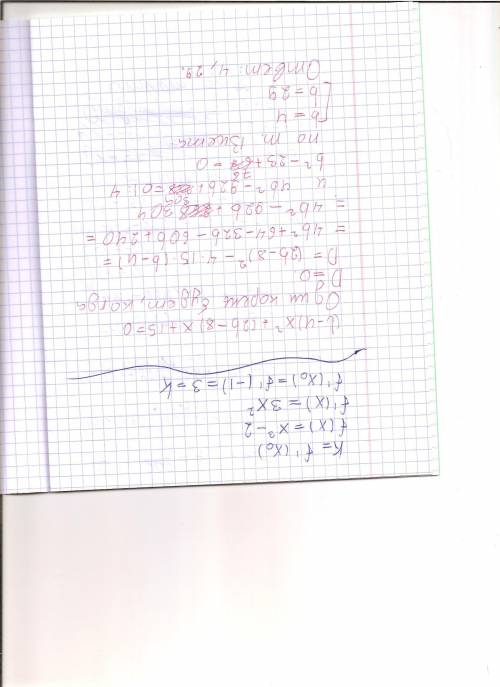 K = f'(x₀)
f(x) = x³ - 2
f'(x) = 3x²
f'(x₀) = f'(-1) = 3 = K
(b-4)x² + (2b-8)x + 15 = 0
Один корень будет, когда
D = 0
D = (2b-8)² - 4·15·(b-4) =
= 4b² + 64 - 32b - 60b + 240 =
= 4b² - 92b + 304
4b² - 92b + 304 = 0 |:4
b² - 23 + 76 = 0
по т. Виета
b = 4
b = 29
Ответ: 4, 29.